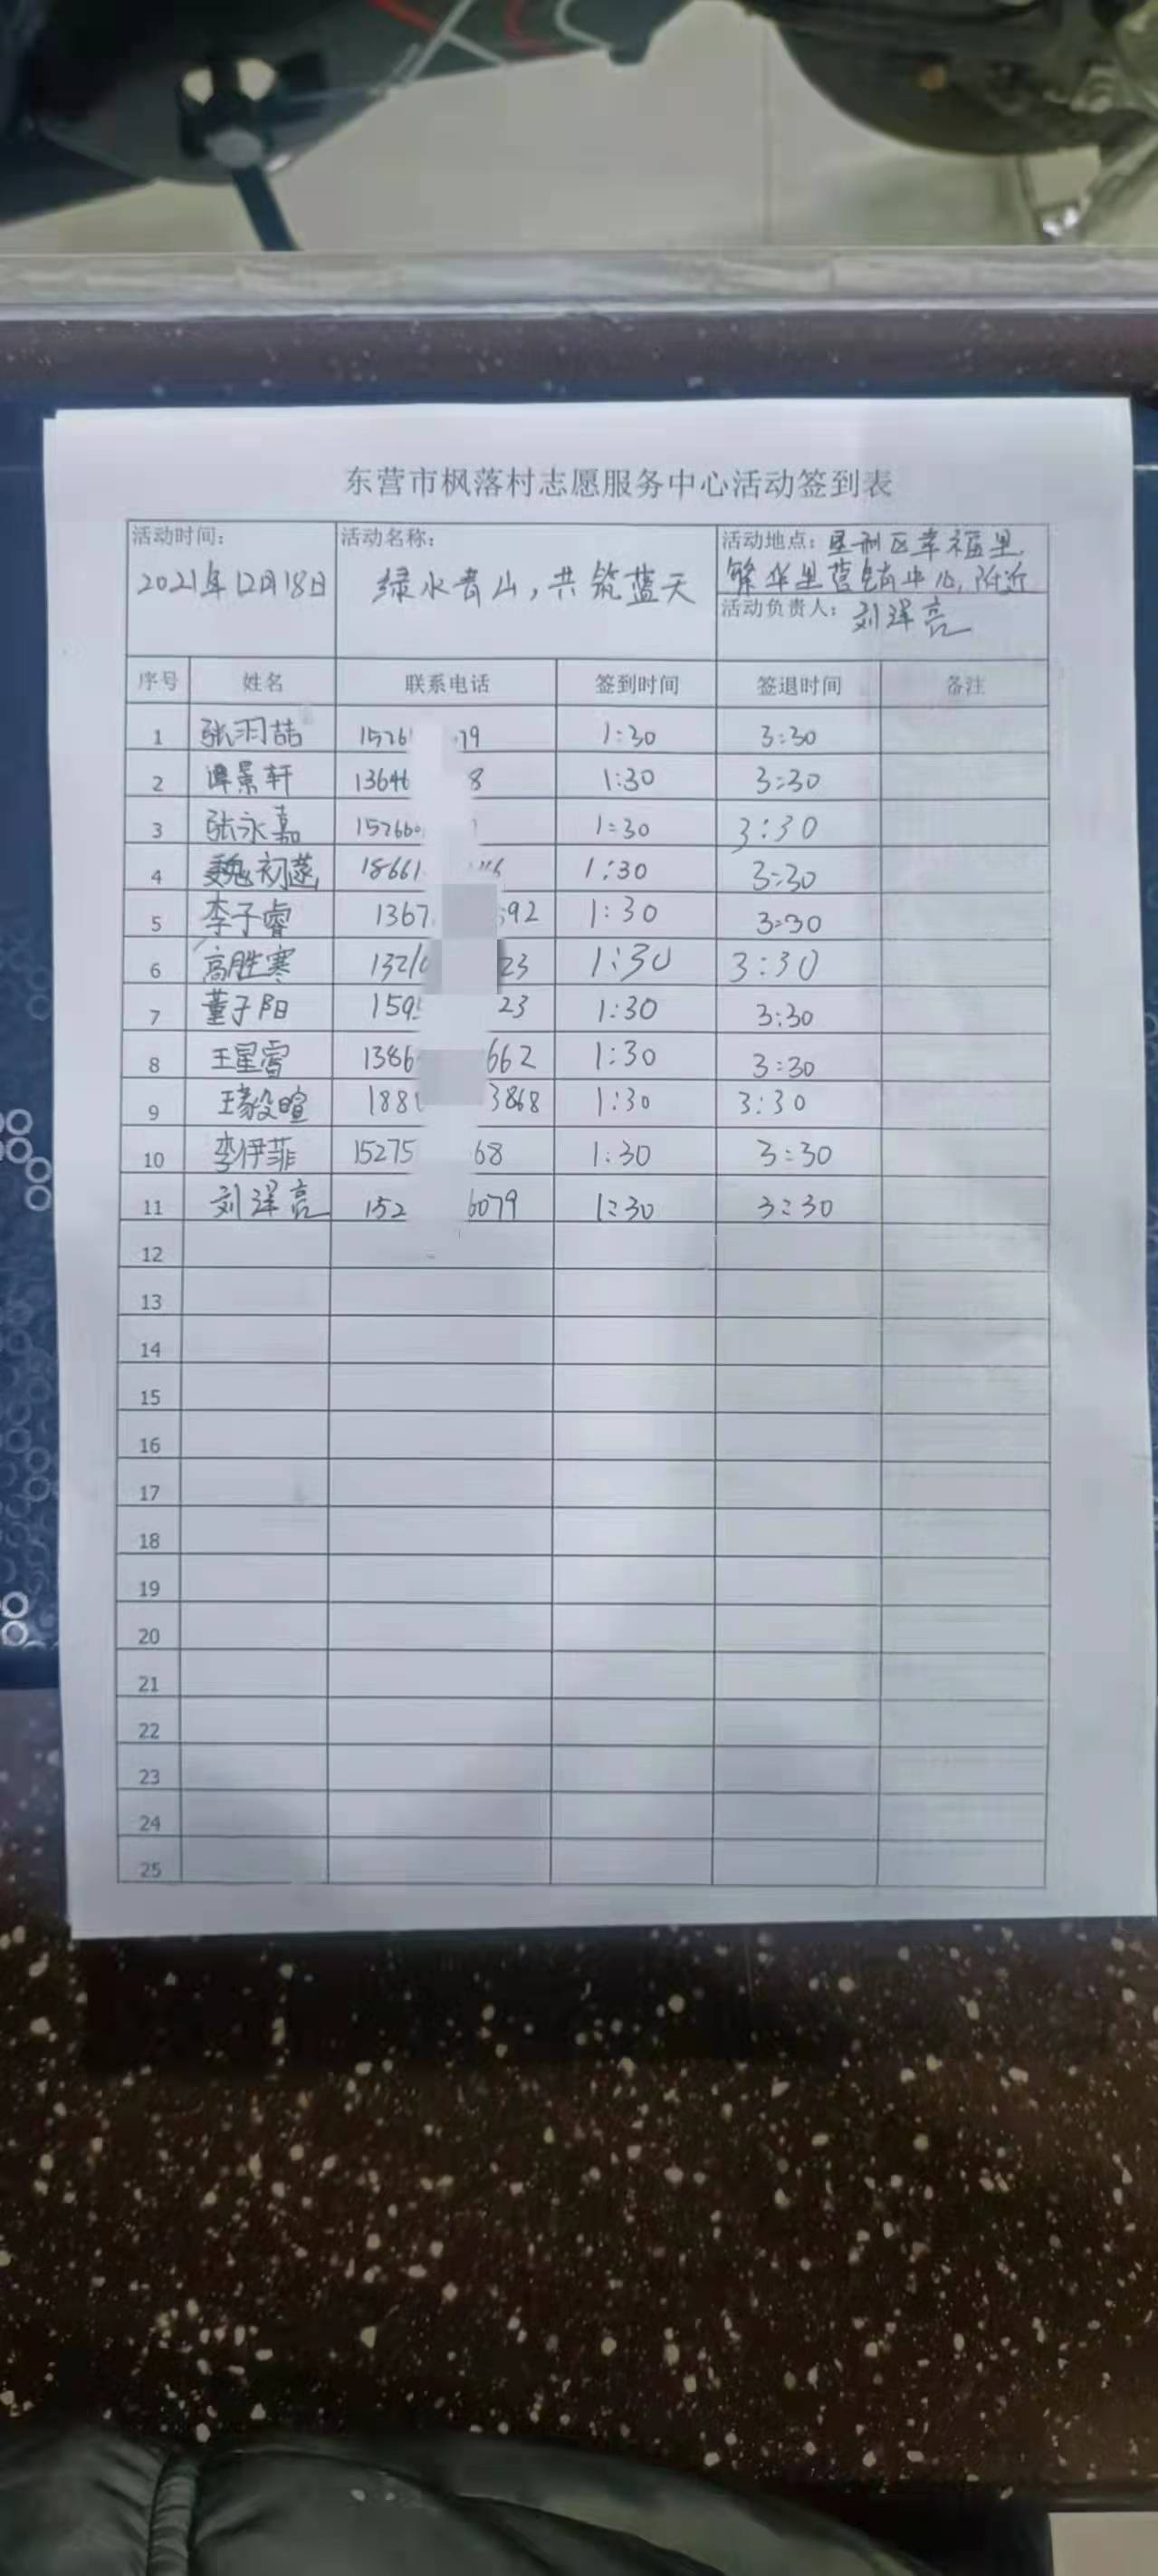 东营市枫落村志愿服务中心活动签到表
活动时间: 活动名称: 活动地点: 垦利区幸福里
2021年12月18日 绿水青山,共筑蓝天 繁华里营销中心附近
活动负责人: 刘泽亮
序号 姓名 联系电话 签到时间 签退时间 备注
1 张羽喆 1526 79 1:30 3:30
2 谭景轩 13646 8 1:30 3:30
3 张永嘉 152660 1:30 3:30
4 魏初蕴 18661 1:30 3:30
5 李子睿 1367 92 1:30 3:30
6 高胜寒 132 23 1:30 3:30
7 董子阳 159 23 1:30 3:30
8 王星雪 1386 662 1:30 3:30
9 188 3868 1:30 3:30
10 李伊菲 15275 68 1:30 3:30
11 刘泽亮 152 6079 1:30 3:30
12
13
14
15
16
17
18
19
20
21
22
23
24
25